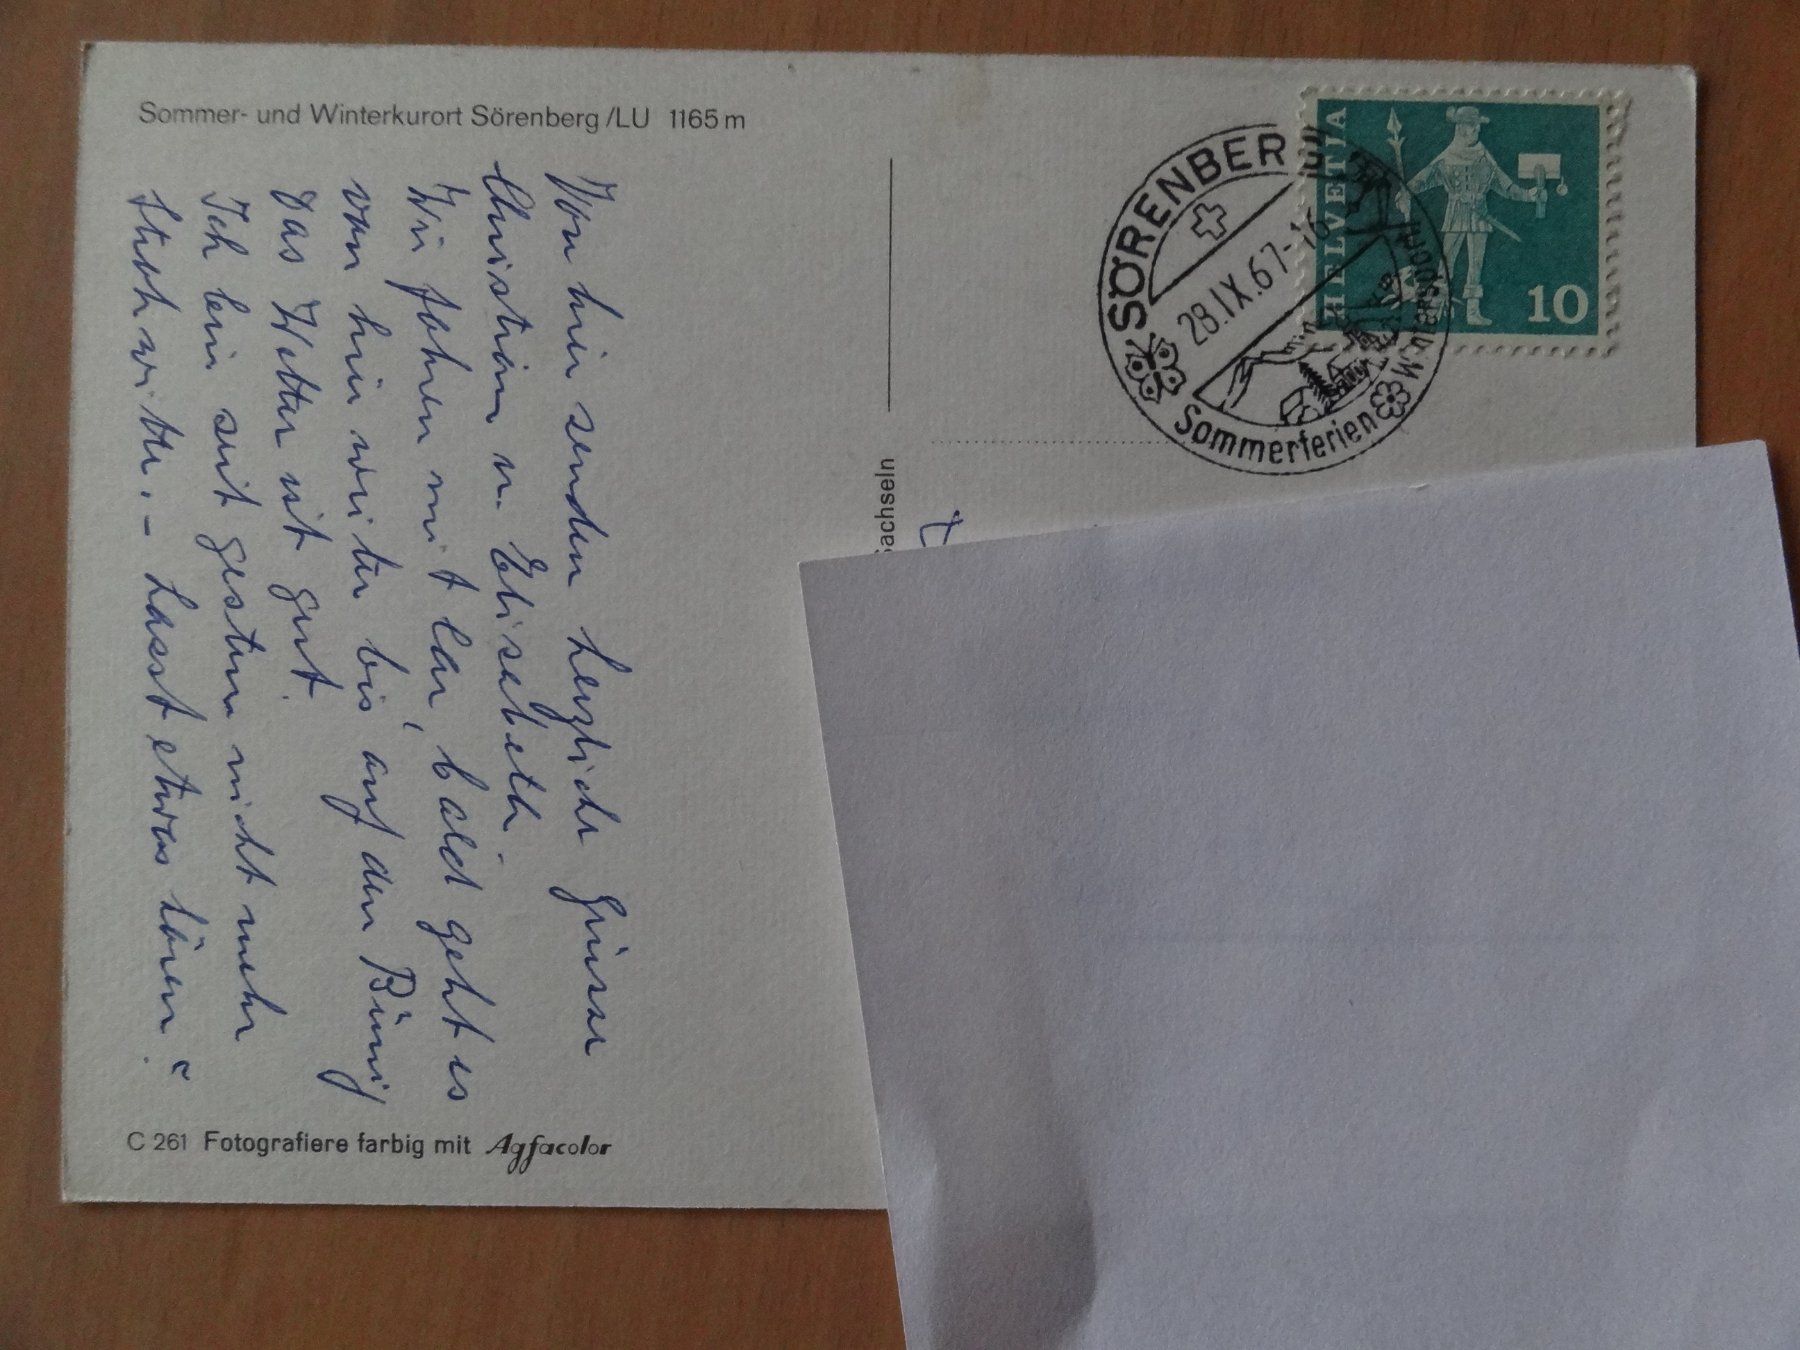 Sommer- und Winterkurort Sörenberg /LU 1165 m
Von hier senden herzliche Grüsse
Christian u. Elisabeth
Wir fahren mit Car, bald geht es
von hier weiter bis auf den Brünig
Das Wetter ist gut.
Ich bin seit gestern nicht mehr
Lasst etwas hören!
C 261 Fotografiere farbig mit Agfacolor
Sachseln
SÖRENBERG
28.IX.67-16
Sommerferien
Wintersport
HELVETIA
10